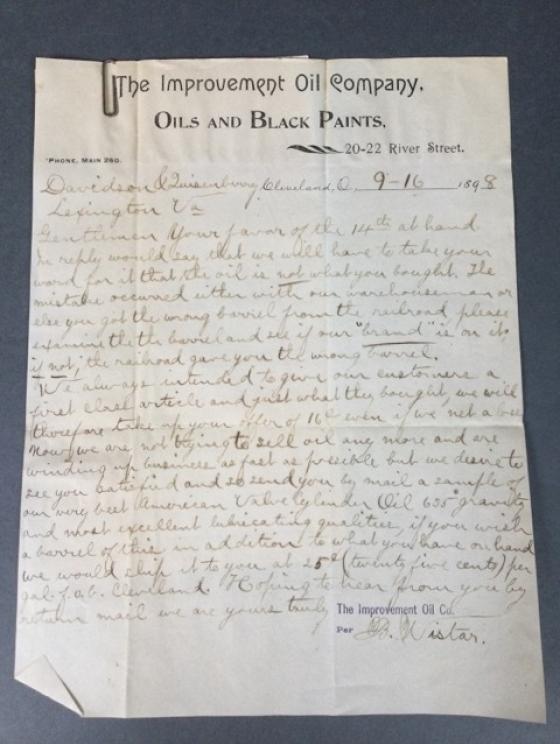 The Improvement Oil Company,
OILS AND BLACK PAINTS,
20-22 River Street.
'PHONE, MAIN 260.
Davidson & Quisenberry Cleveland, O., 9-16 1898
Lexington Va
Gentlemen Your favor of the 14th at hand
In reply would say that we will have to take your
word for it that the oil is not what you bought. The
mistake occurred either with our warehouseman or
else you got the wrong barrel from the railroad please
examine the the barrel and see if our "brand" is on it
if not, the railroad gave you the wrong barrel.
We always intended to give our customers a
first class article and just what they bought, we will
therefore take up your offer of 16¢ even if we net a loss
Now we are not trying to sell oil any more and are
winding up business as fast as possible but we desire to
see you satisfied and so send you by mail a sample of
our very best American Valve Cylinder Oil 635° gravity
and most excellent lubricating qualities, if you wish
a barrel of this in addition to what you have on hand
we would ship it to you at 25¢ (twenty five cents) per
gal. f.o.b. Cleveland. Hoping to hear from you by
return mail we are yours truly The Improvement Oil Co.
Per B. Wistar.